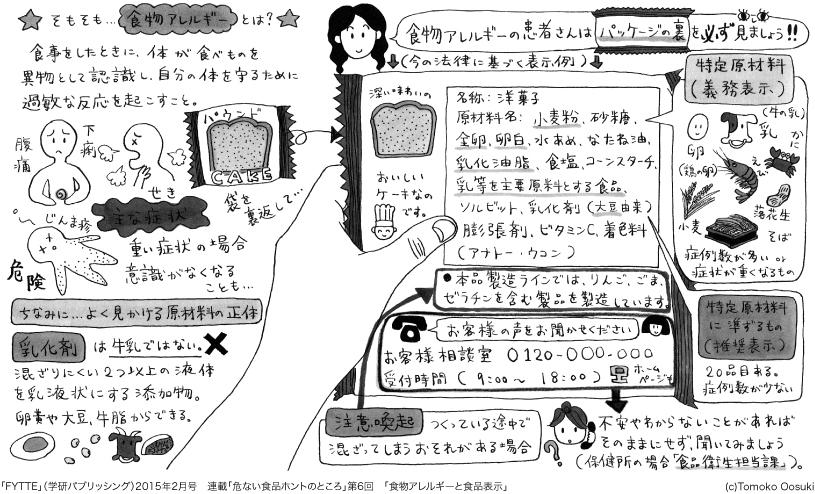 そもそも…食物アレルギーとは?
食事をしたときに、体が食べものを
異物として認識し、自分の体を守るために
過敏な反応を起こすこと。
腹痛
下痢
せき
じんま疹
主な症状
パウンド
CAKE
袋を
裏返して…
重い症状の場合
意識がなくなる
ことも…
危険
ちなみに…よく見かける原材料の正体
乳化剤は牛乳ではない。
混ざりにくい2つ以上の液体
を乳液状にする添加物。
卵黄や大豆、牛脂からできる。
食物アレルギーの患者さんはパッケージの裏を必ず見ましょう!!
(今の法律に基づく表示例)
深い味わいの
おいしい
ケーキなの
です。
名称:洋菓子
原材料名:小麦粉、砂糖、
全卵、卵白、水あめ、なたね油、
乳化油脂、食塩、コーンスターチ、
乳等を主要原料とする食品、
ソルビット、乳化剤(大豆由来)
膨張剤、ビタミンC、着色料
(アナトー・ウコン)
●本品製造ラインでは、りんご、ごま、
ゼラチンを含む製品を製造しています。
お客様の声をお聞かせください
お客様相談室 0120-000-000
受付時間(9:00~18:00)
ホーム
ページも
注意喚起
つくっている途中で
混ざってしまうおそれがある場合
特定原材料
(義務表示)
卵
(鶏の卵)
(牛の乳)
乳
かに
えび
小麦
落花生
そば
症例数が多い or
症状が重くなるもの
特定原材料
に準ずるもの
(推奨表示)
20品目ある。
症例数が少ない
不安やわからないことがあれば
そのままにせず、聞いてみましょう
(保健所の場合「食品衛生担当課」)。
「FYTTE」(学研パブリッシング)2015年2月号 連載「危ない食品ホントのところ」第6回 「食物アレルギーと食品表示」
(c)Tomoko Oosuki